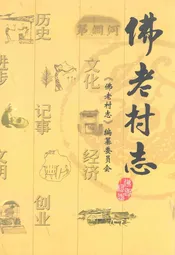 佛老村志
《佛老村志》编纂委员会
历史
文化
进步
记事
经济
文明
创业